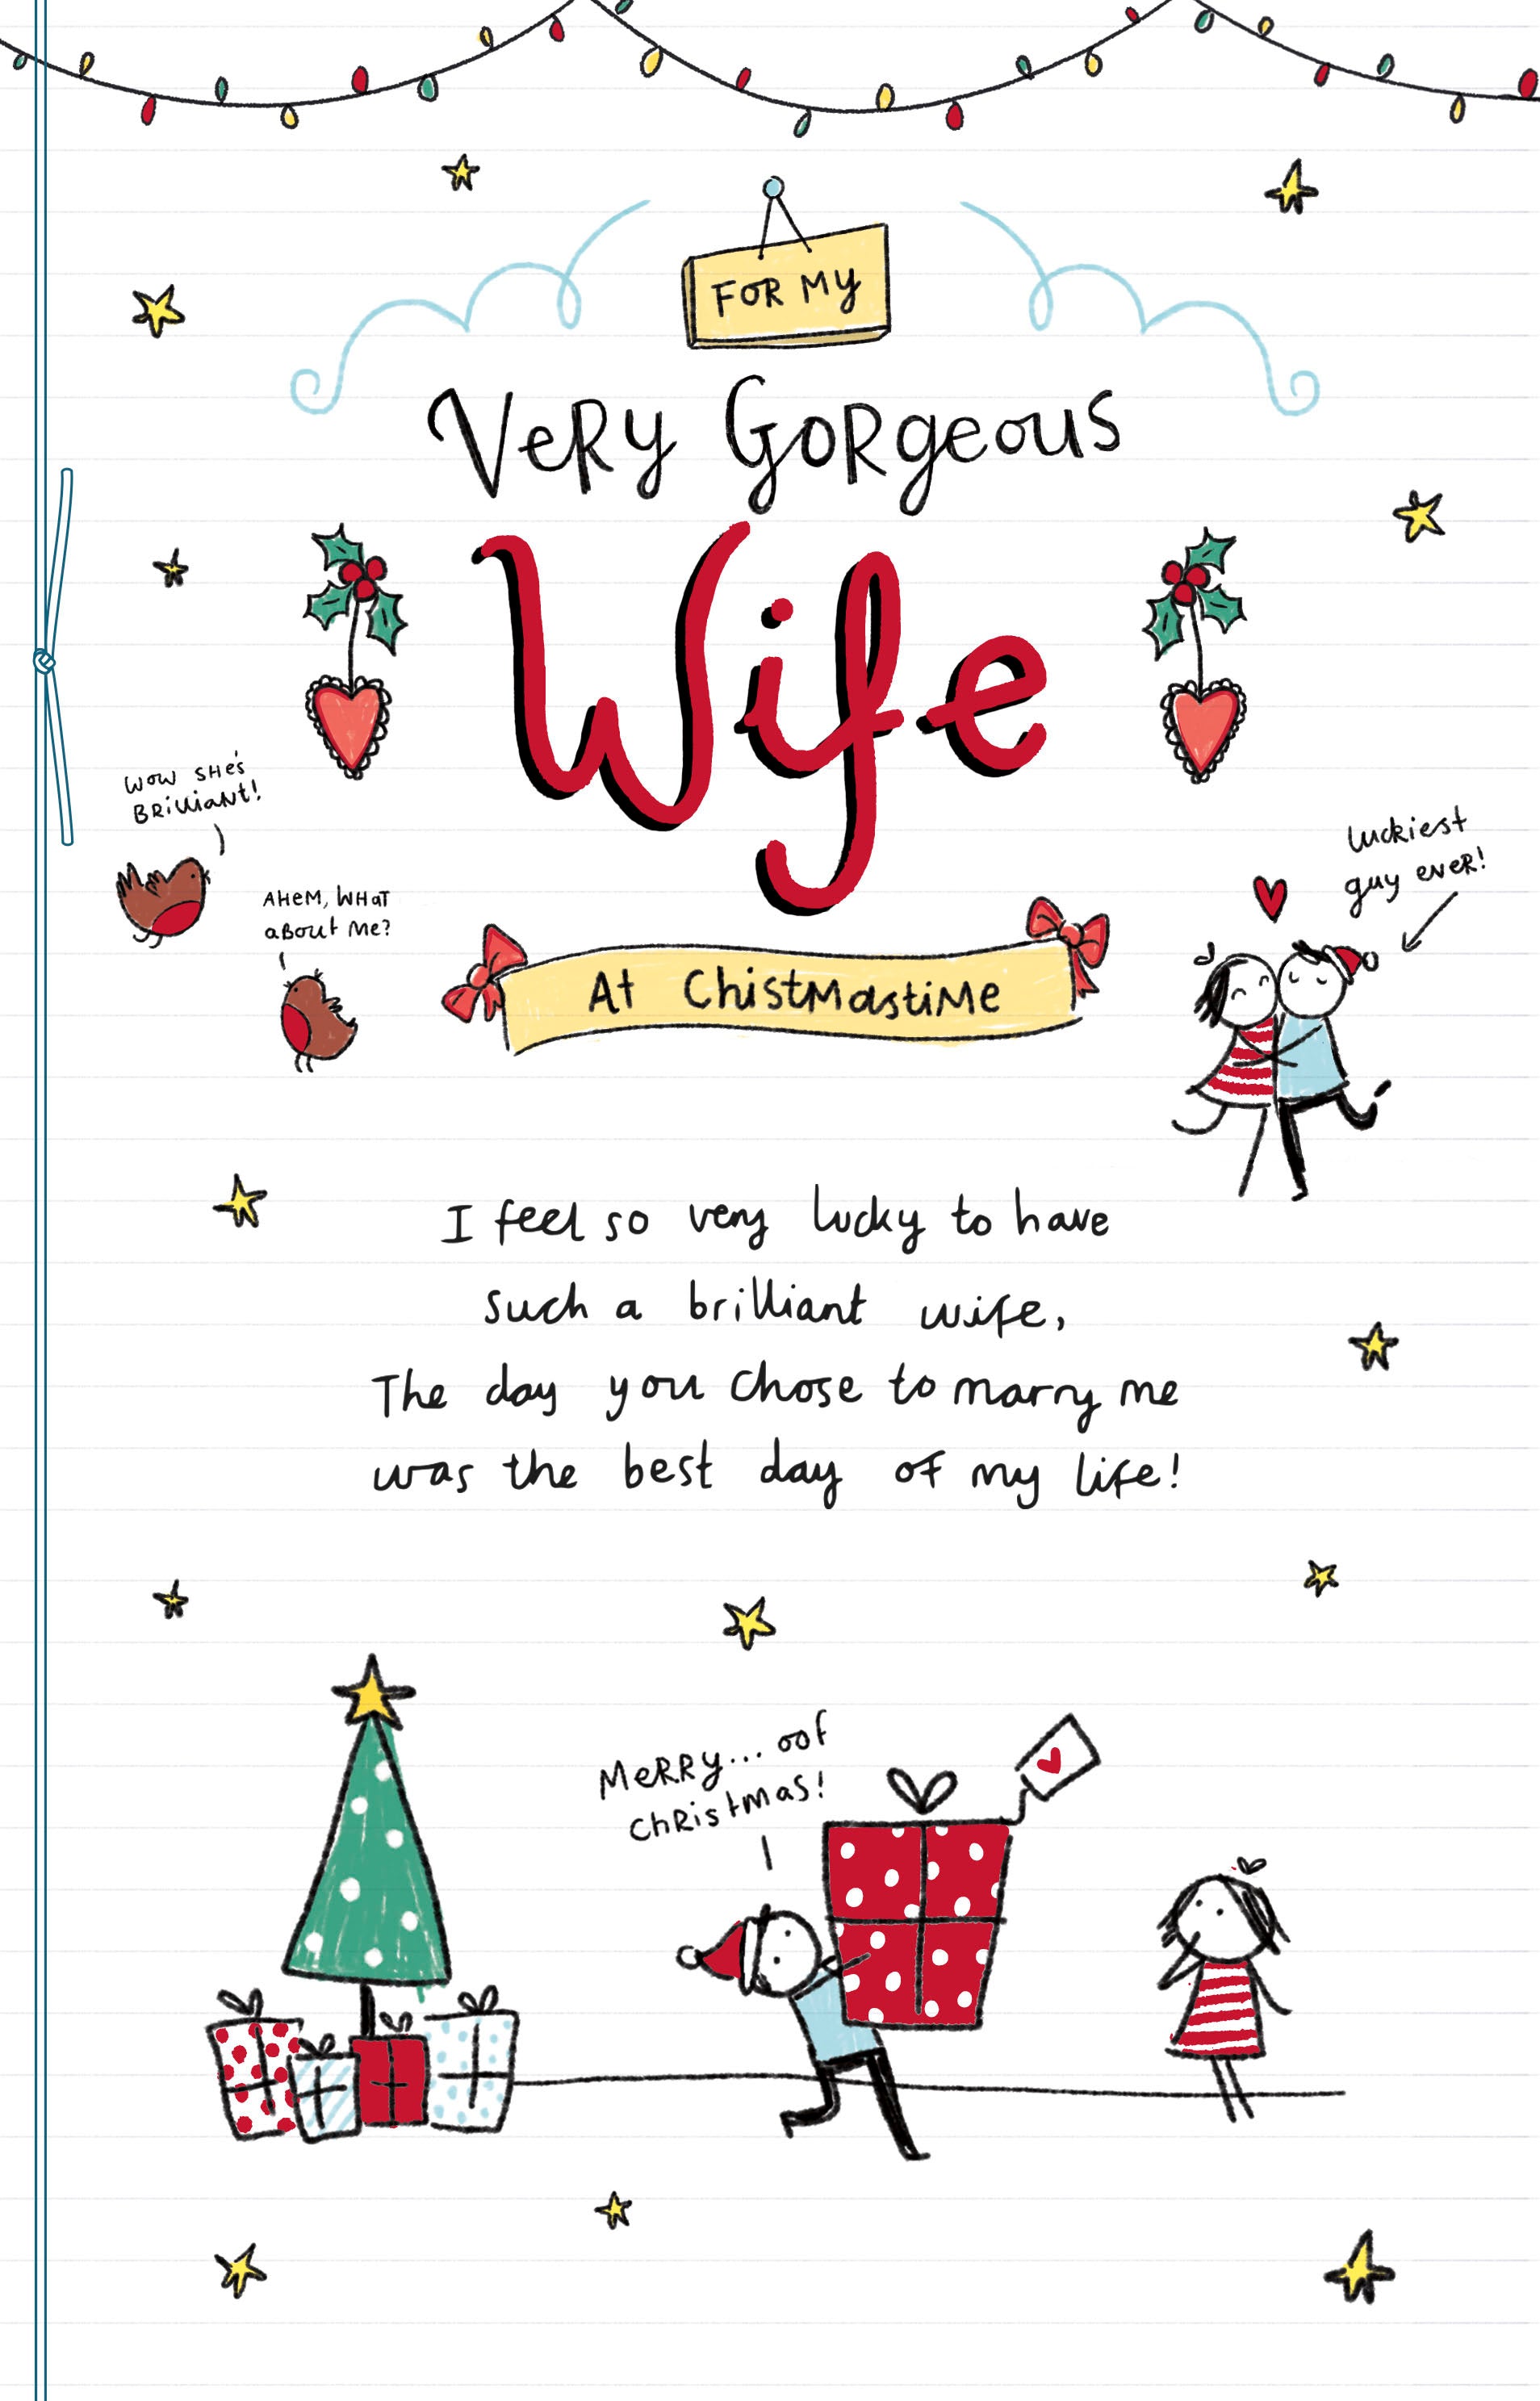 FOR MY
VeRy GoRgeous
Wife
WOW SHe's
BRilliaNt!
AHeM, WHaT
aBout Me?
luckiest
guy eveR!
At ChistMastiMe
I feel so very lucky to have
such a brilliant wife,
The day you chose to marry me
was the best day of my life!
MeRRy... oof
ChRistmas!